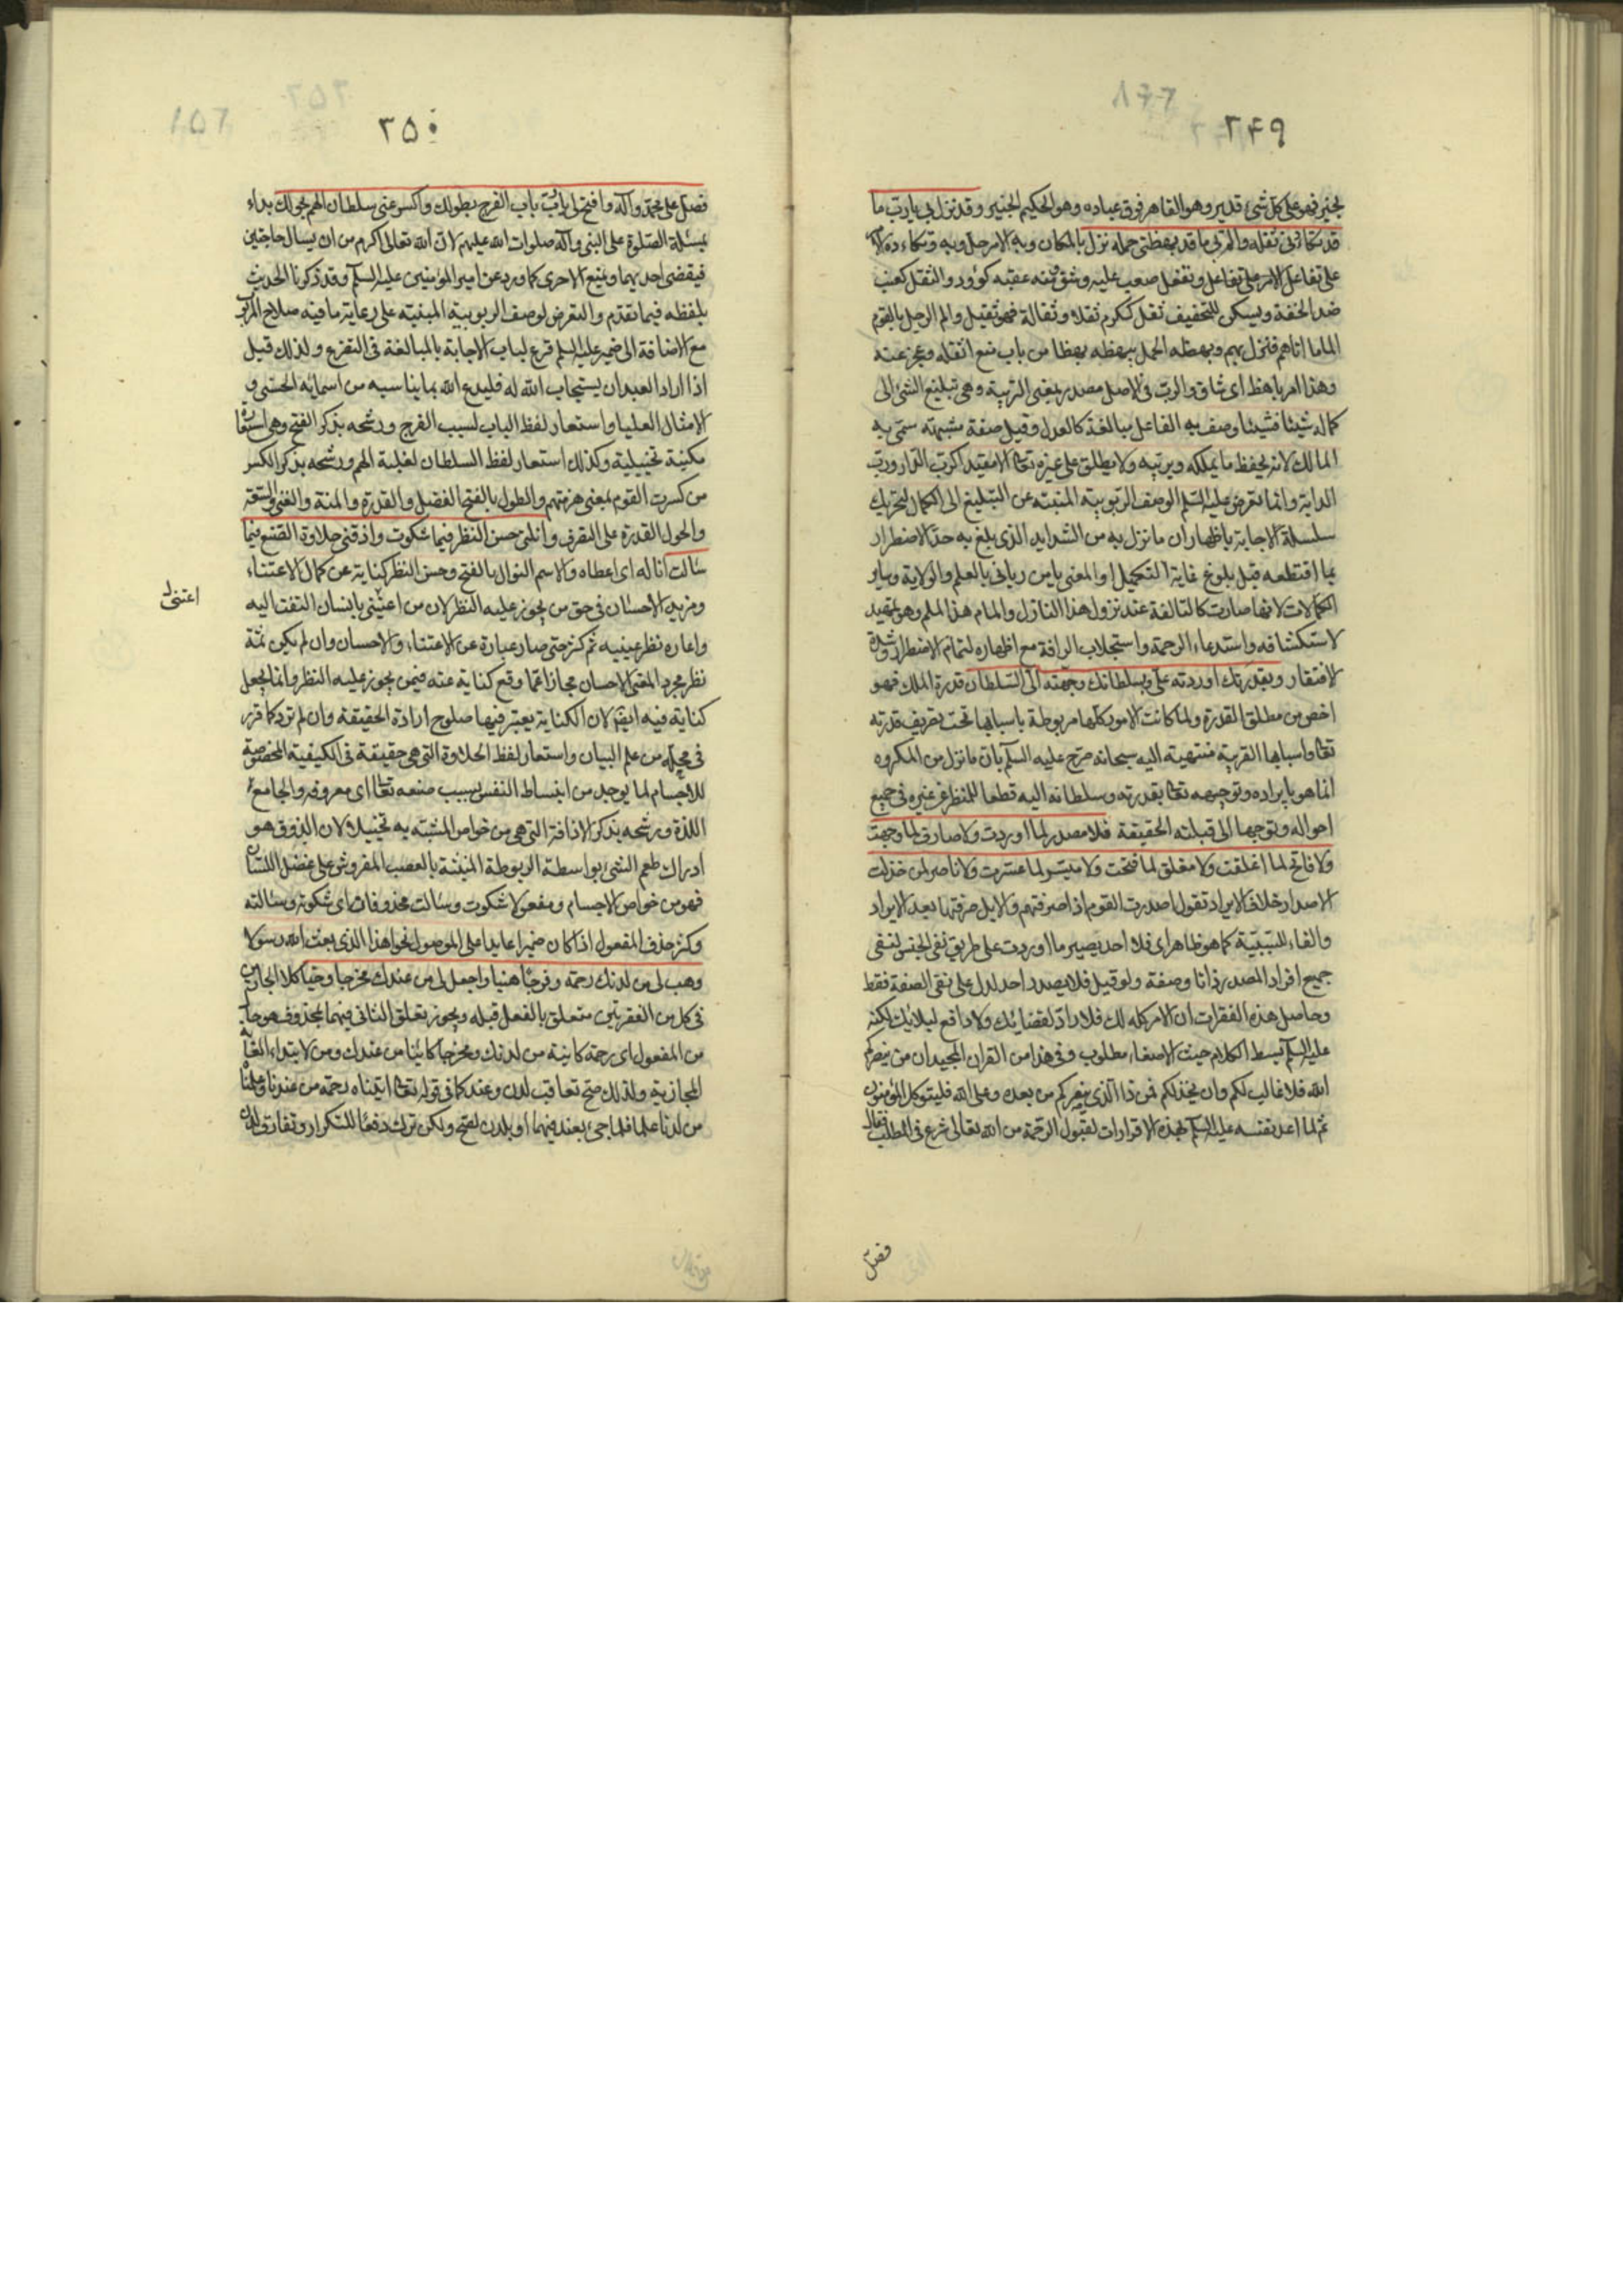 ٢۴٩
بخير فهو على كل شئ قدير وهو القاهر فوق عباده وهو الحكيم الخبير وقد نزل بى يا رب ما
قد تكأدنى ثقله والم بى ما قد بهظنى حمله نزل بالمكان وبه الامر حل وبه وتكاءده الامر
على تفاعل الامر على تفاعل وتفعل صعب عليه وشق ومنه عقبه كؤود والثقل كعنب
ضد الخفة ويسكن للتخفيف ثقل ككرم ثقلا وثقالة فهو ثقيل والم الرجل بالقوم
الماما اتاهم فنزل بهم وبهظه الحمل يبهظه بهظا من باب منع اثقله وعجز عنه
وهذا امر باهظ اى شاق والرب فى الاصل مصدر بمعنى التربية وهى تبليغ الشئ الى
كماله شيئا فشيئا وصف به الفاعل مبالغة كالعدل وقيل صفة مشبهة سمى به
المالك لانه يحفظ ما يملكه ويربيه ولا يطلق على غيره تعالى الا مقيدا كرب الدار ورب
الدابة وانما تعرض عليه السلم الوصف الربوبية المنبئة عن التبليغ الى الكمال لتحريك
سلسلة الاجابة باظهار ان ما نزل به من الشدايد الذى بلغ به حد الاضطرار
بما اقتطعه قبل بلوغ غاية التكميل او المعنى يا من ربانى بالعلم والولاية وساير
الكمالات لانها صارت كالتالفة عند نزول هذا النازل والمام هذا الملم وهو تمهيد
لاستكشافه واستدعاء الرحمة واستجلاب الرافة مع اظهاره لتمام الاضطرار وشدة
الافتقار وبقدرتك اوردته على وبسلطانك وجهته الى السلطان قدرة الملك فهو
اخص من مطلق القدرة ولما كانت الامور كلها مربوطة باسبابها تحت تصريف قدرته
تعالى واسبابها القريبة منتهية اليه سبحانه صرح عليه السلم بان ما نزل من المكروه
انما هو بايراده وتوجيهه تعالى بقدرته وسلطانه اليه قطعا للنظر عن غيره فى جميع
احواله وتوجها الى قبلته الحقيقة فلا مصدر لما اوردت ولا صارف لما وجهت
ولا فاتح لما اغلقت ولا مغلق لما فتحت ولا ميسر لما عسرت ولا ناصر لمن خذلت
الاصدار خلاف الايراد تقول اصدرت القوم اذا صرفتهم والابل صرفتها بعد الايراد
والفاء للسببية كما هو ظاهر اى فلا احد يصير ما اوردت على طريق نفى الجنس لنفى
جميع افراد المصدر ذاتا وصفة ولو قيل فلا يصدر احد لدل على نفى الصفة فقط
وحاصل هذه الفقرات ان الامر كله لك فلا راد لقضائك ولا دافع لبلائك لكنه
عليه السلم بسط الكلام حيث الاصغاء مطلوب وفى هذا من القران المجيد ان ينصركم
الله فلا غالب لكم وان يخذلكم فمن ذا الذى ينصركم من بعده وعلى الله فليتوكل المؤمنون
ثم لما اعد نفسه عليه السلم بهذه الاقرارات لقبول الرحمة من الله تعالى شرع فى المطلب فقال
فصل
٢۵٠
فصل على محمد وآله وافتح لى يا رب باب الفرج بطولك واكسر عنى سلطان الهم بحولك بداء
بمسئلة الصلوة على النبى وآله صلوات الله عليهم لان الله تعالى اكرم من ان يسال حاجتين
فيقضى احديهما ويمنع الاخرى كما ورد عن امير المؤمنين عليه السلم وقد ذكرنا الحديث
بلفظه فيما تقدم والتعرض لوصف الربوبية المنبئة على رعاية ما فيه صلاح المربوب
مع الاضافة الى ضميره عليه السلم قرع لباب الاجابة بالمبالغة فى التضرع ولذلك قيل
اذا اراد العبد ان يستجاب الله له فليدع الله بما يناسبه من اسمائه الحسنى و
الامثال العليا واستعار لفظ الباب لسبب الفرج ورشحه بذكر الفتح وهى استعارة
مكنية تخييلية وكذلك استعار لفظ السلطان لغلبة الهم ورشحه بذكر الكسر
من كسرت القوم بمعنى هزمتهم والطول بالفتح الفضل والقدرة والمنة والغنى والسعة
والحول القدرة على التصرف وانلنى حسن النظر فيما شكوت واذقنى حلاوة الصنع فيما
سالت اناله اى اعطاه والاسم النوال بالفتح وحسن النظر كناية عن كمال الاعتناء
ومزيد الاحسان فى حق من يجوز عليه النظر لان من اعتنى بانسان التفت اليه
واعاره نظر عينيه ثم كثر حتى صار عبارة عن الاعتناء والاحسان وان لم يكن ثمة
نظر مجرد المعنى الاحسان مجازا عما وقع كناية عنه فيمن يجوز عليه النظر وانما يجعل
كناية فيه ايضا لان الكناية يعتبر فيها صلوح ارادة الحقيقة وان لم ترد كما قرر
فى محله من علم البيان واستعار لفظ الحلاوة التى هى حقيقة فى الكيفية المخصوصة
للاجسام لما يوجد من انبساط النفس بسبب صنعه تعالى اى معروفه والجامع
اللذة ورشحه بذكر الاذاقة التى هى من خواص المشبه به تخييلا لان الذوق هو
ادراك طعم الشئ بواسطة الرطوبة المنبثة بالعصب المفروش على عضل اللسان
فهو من خواص الاجسام ومفعولا شكوت وسالت محذوفان اى شكوته وسالته
وكثر حذف المفعول اذا كان ضميرا عايدا على الموصول نحو اهذا الذى بعث الله رسولا
وهب لى من لدنك رحمة وفرجا هنيئا واجعل لى من عندك مخرجا وحيا كلا الجارين
فى كل من الفقرتين متعلق بالفعل قبله ويجوز تعلق الثانى فيهما بمحذوف هو حال
من المفعول اى رحمة كاينة من لدنك ومخرجا كاينا من عندك ومن لابتداء الغاية
المجازية ولذلك صح تعاقب لدن وعند كما فى قوله تعالى اتيناه رحمة من عندنا وعلمناه
من لدنا علما فلما جئ بعند فيهما او بلدن لصح ولكن ترك دفعا للتكرار وتفارق لدن
اعتنى